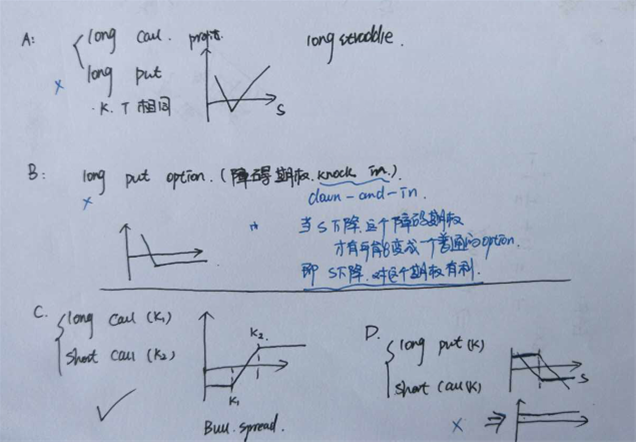 A: long call. profit. long straddle.
long put
× K. T 相同 S
B: long put option. (障碍期权. knock in.)
× down-and-in.
当 S下降. 这个障碍期权
才有可能变成一个普通的option.
即 S下降. 对这个期权有利.
C. long call (K₁)
short call (K₂) K₂.
K₁
✓ Bull. spread.
D. long put (K)
short call (K) S
× ⇒